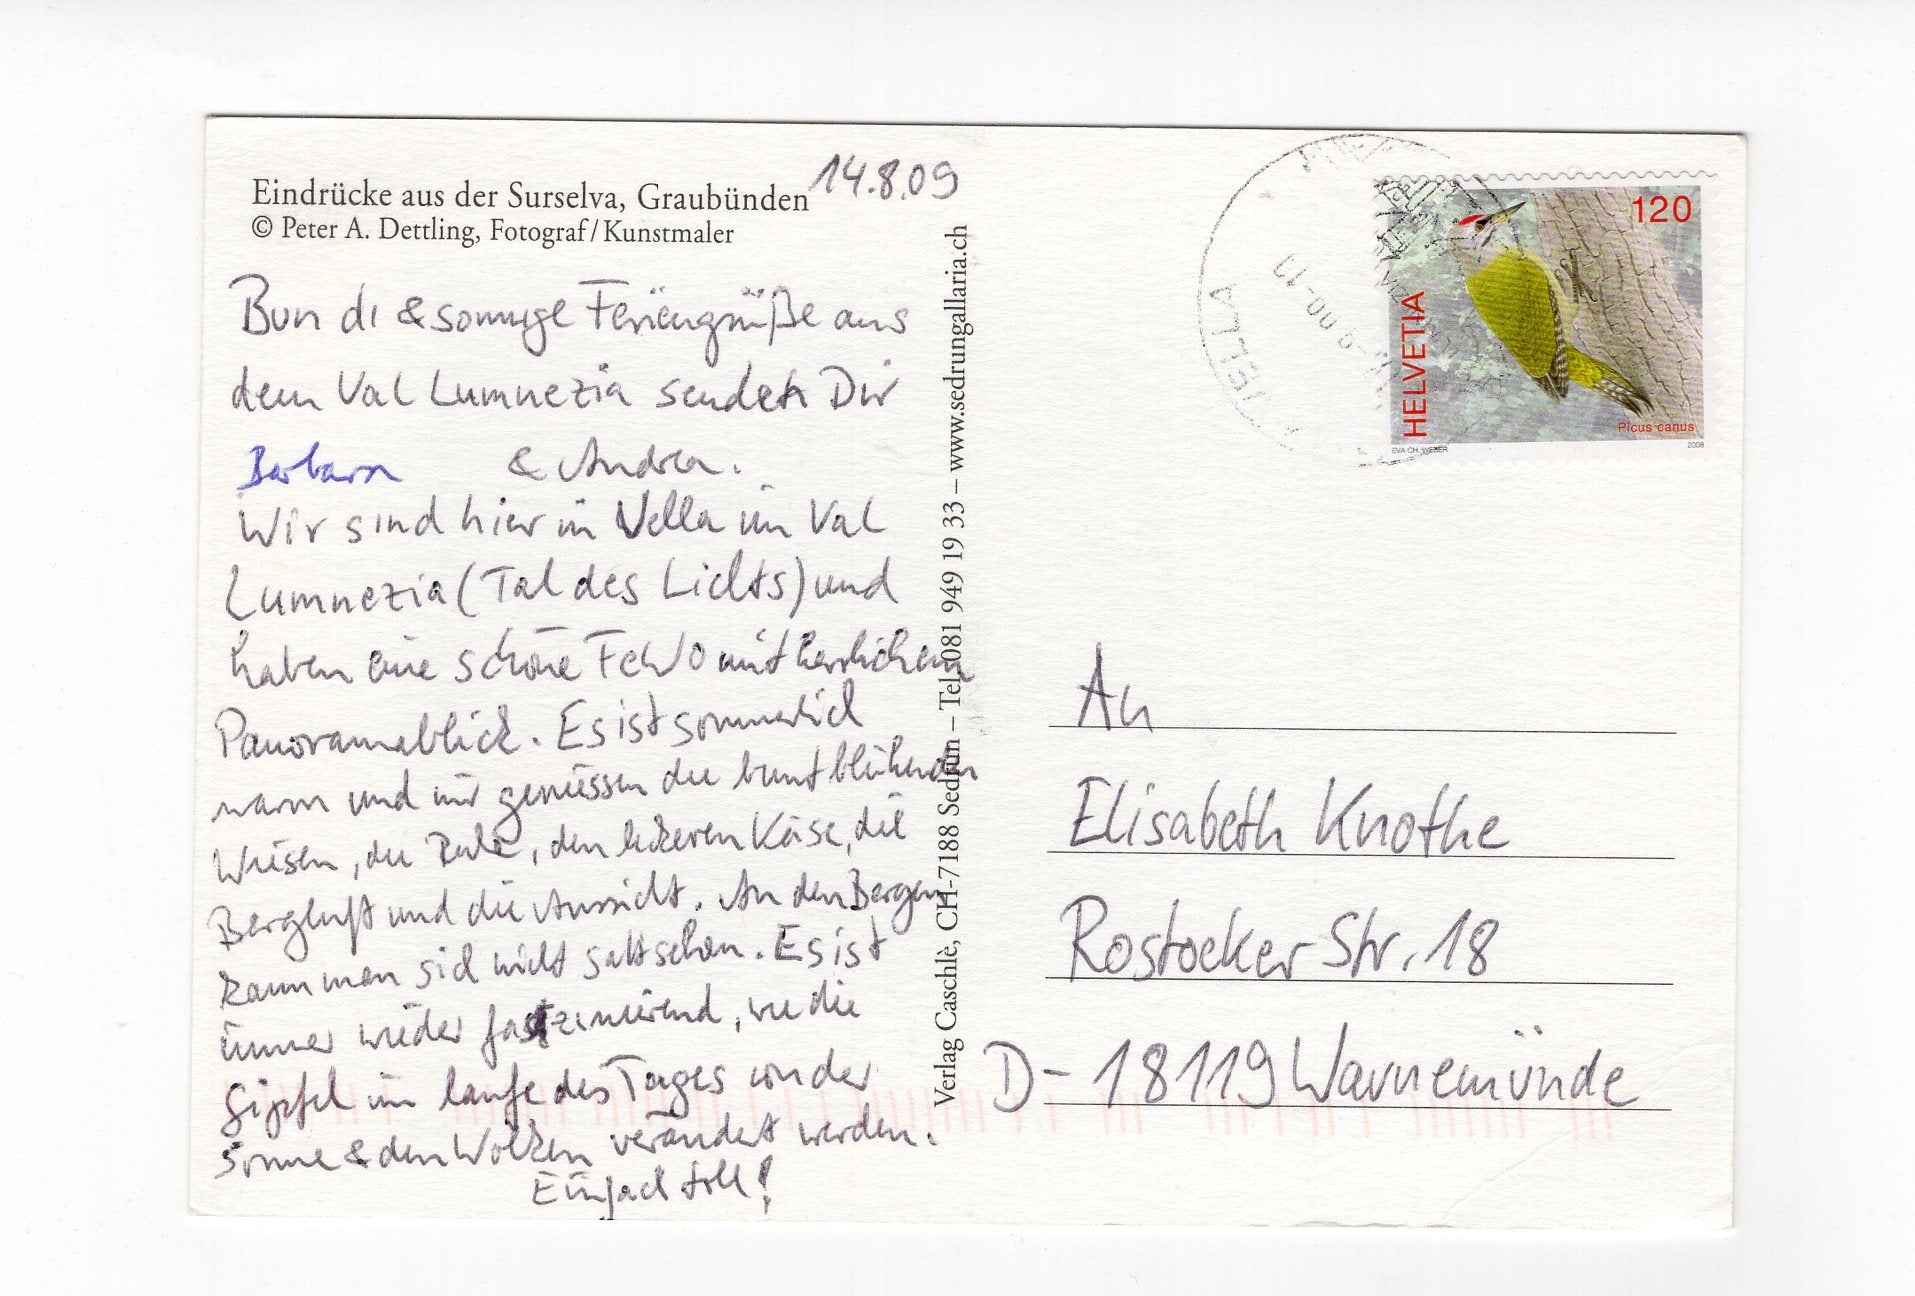 Eindrücke aus der Surselva, Graubünden
© Peter A. Dettling, Fotograf/Kunstmaler
14.8.09
Bun di & sonnige Feriengrüße aus
dem Val Lumnezia senden Dir
Barbara & Andrea.
Wir sind hier in Vella im Val
Lumnezia (Tal des Lichts) und
haben eine schöne FeWo mit herrlichem
Panoramablick. Es ist sommerlich
warm und wir geniessen die bunt blühenden
Wiesen, die Ruhe, den leckeren Käse, die
Bergluft und die Aussicht. An den Bergen
kann man sich nicht satt sehen. Es ist
immer wieder faszinierend, wie die
Gipfel im laufe des Tages von der
Sonne & den Wolken verändert werden.
Einfach toll!
Verlag Caschlè, CH-7188 Sedrun – Tel. 081 949 19 33 – www.sedrungallaria.ch
VELLA
120
HELVETIA
Picus canus
EVA CH. WEBER 2008
An
Elisabeth Knothe
Rostocker Str. 18
D-18119 Warnemünde